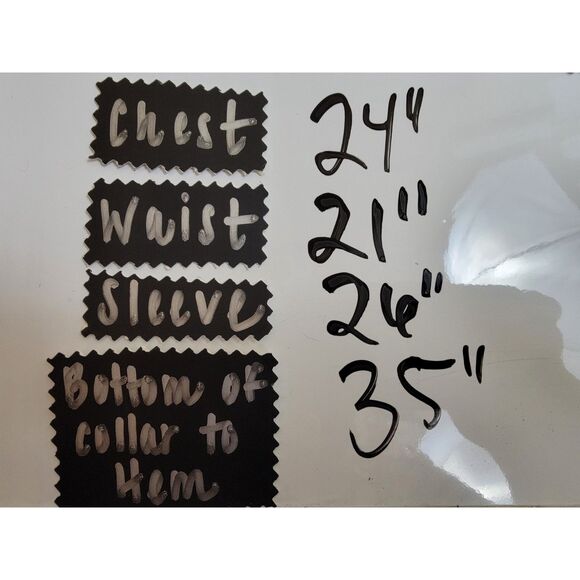 Chest 24"
Waist 21"
Sleeve 26"
Bottom of
collar to 35"
Hem